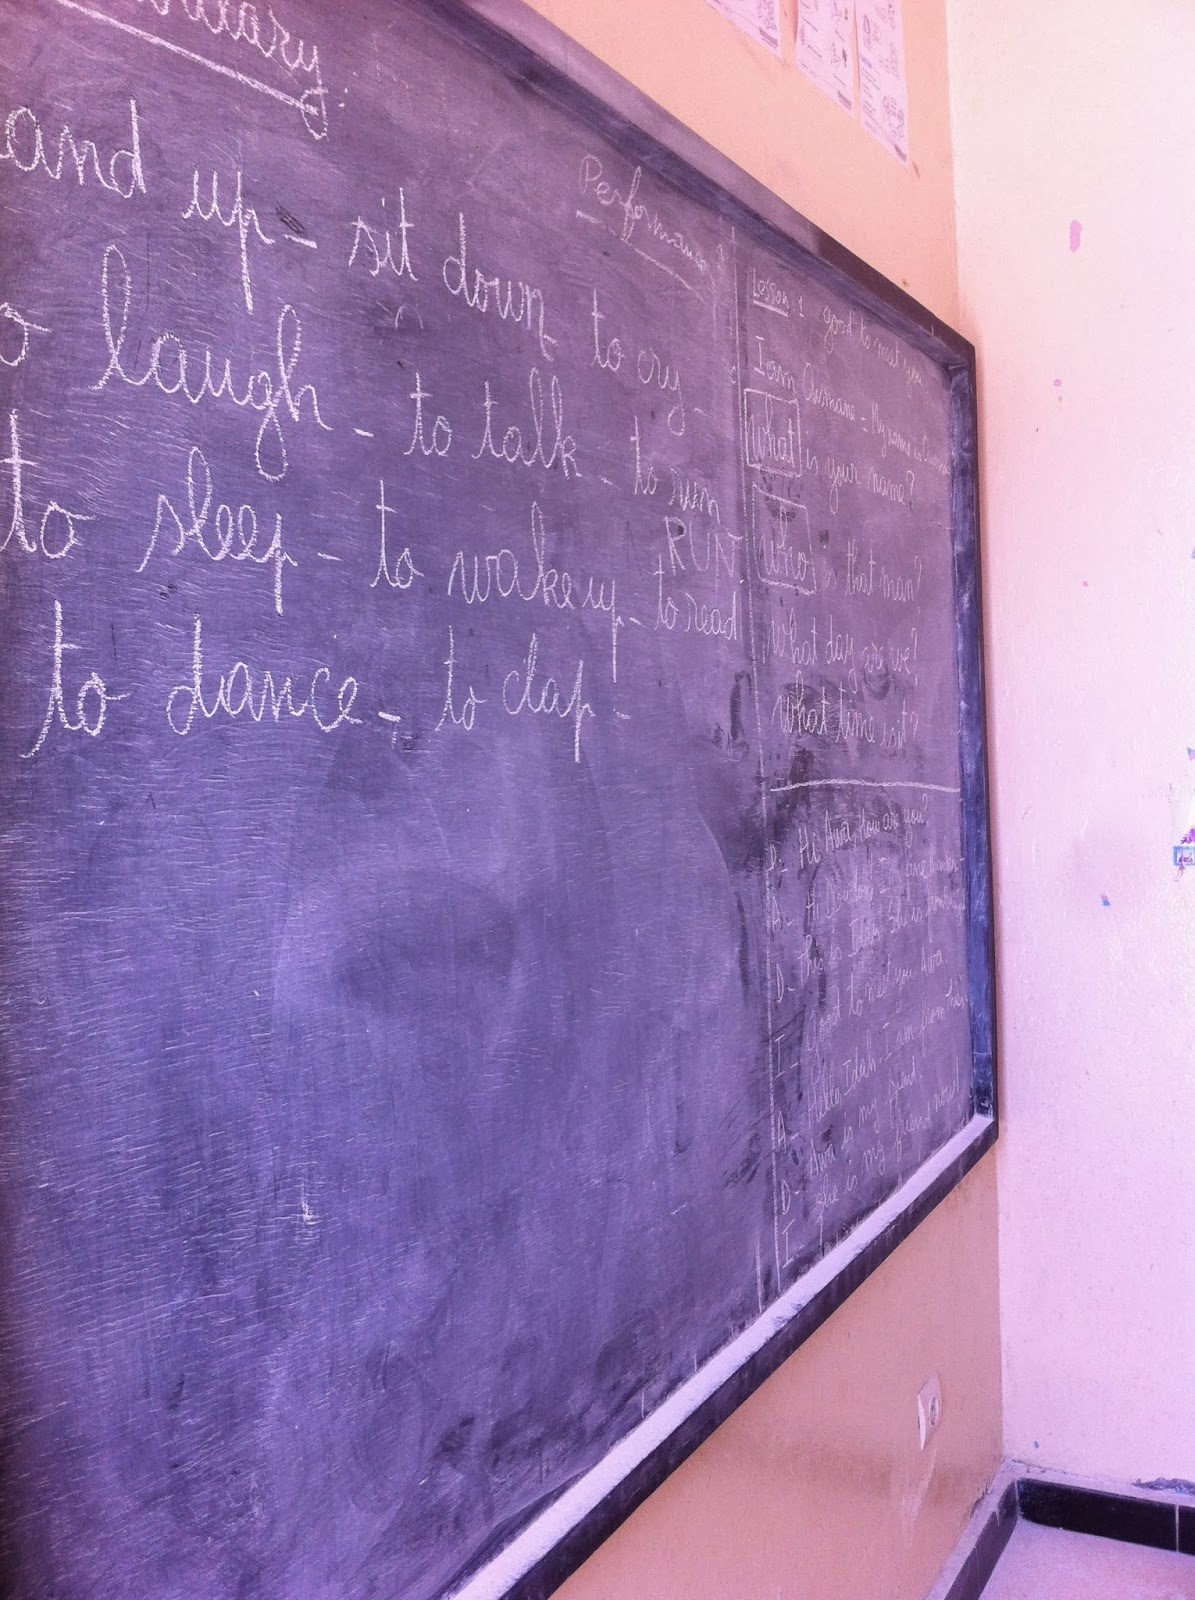 and up - sit down - to cry -
to laugh - to talk - to run -
RUN
to sleep - to wake up - to read
to dance - to clap -
Performance
Lesson 1 good to meet you
I am Ousmane - My name is Ousmane
What is your name?
Who is that man?
What day are we?
What time is it?
D: Hi Awa, how are you?
A - Hi fine thanks
D - This is She is
I - Good to meet you Awa.
A - Hello Idah. I am from
D - Awa is my friend.
I - She is my friend now!